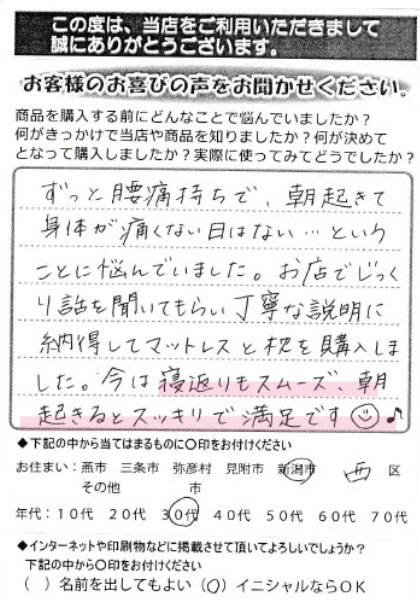 この度は、当店をご利用いただきまして
誠にありがとうございます。
お客様のお喜びの声をお聞かせください。
商品を購入する前にどんなことで悩んでいましたか？
何がきっかけで当店や商品を知りましたか？何が決めて
となって購入しましたか？実際に使ってみてどうでしたか？
ずっと腰痛持ちで、朝起きて
身体が痛くない日はない…という
ことに悩んでいました。お店でじっく
り話を聞いてもらい丁寧な説明に
納得してマットレスと枕を購入しま
した。今は寝返りもスムーズ、朝
起きるとスッキリで満足です☺♪
◆下記の中から当てはまるものに○印をお付けください
お住まい：燕市　三条市　弥彦村　見附市　新潟市　西　区
その他　　　　市
年代：１０代　２０代　３０代　４０代　５０代　６０代　７０代
◆インターネットや印刷物などに掲載させて頂いてよろしいでしょうか？
下記の中から○印をお付けください
（　）名前を出してもよい（○）イニシャルならＯＫ